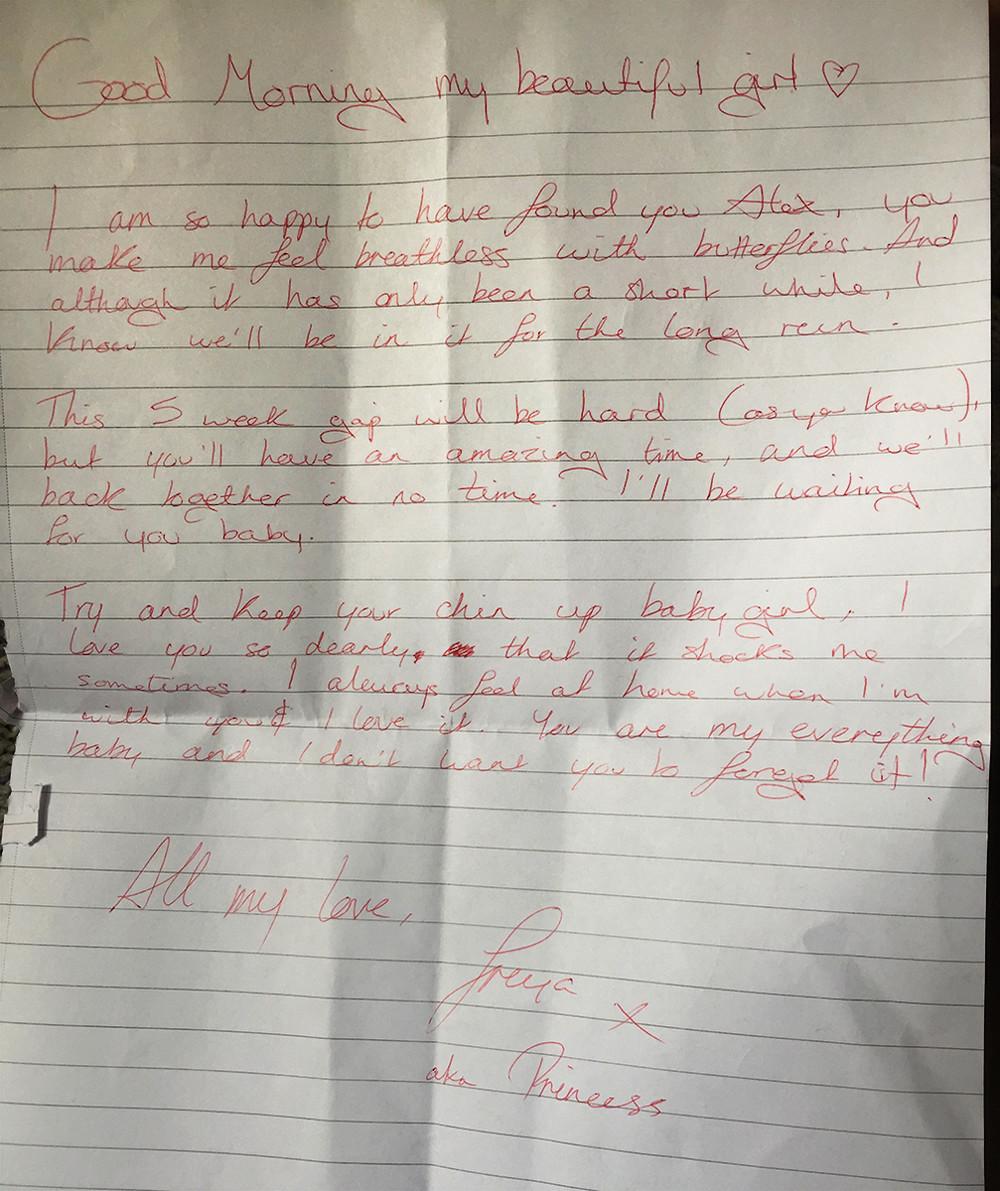 Good Morning my beautiful girl ♡
I am so happy to have found you Alex, you
make me feel breathless with butterflies. And
although it has only been a short while, I
know we'll be in it for the long run.
This 5 week gap will be hard (as you know),
but you'll have an amazing time, and we'll
back together in no time. I'll be waiting
for you baby.
Try and keep your chin up baby girl, I
love you so dearly, that it shocks me
sometimes. I always feel at home when I'm
with you & I love it. You are my everything
baby and I don't want you to forget it!
All my love,
Freya x
aka Princess